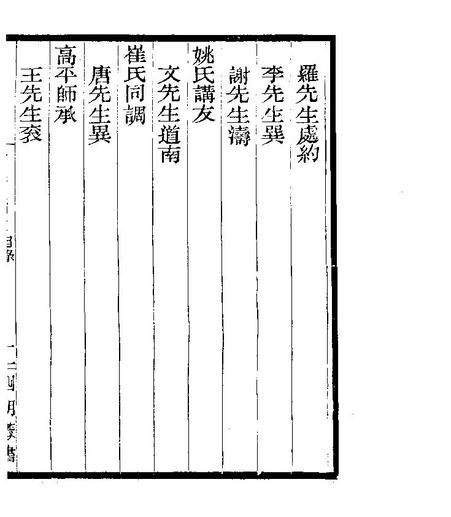 羅先生處約
李先生巽
謝先生濤
姚氏講友
文先生道南
崔氏同調
唐先生異
高平師承
王先生袞
四明叢書